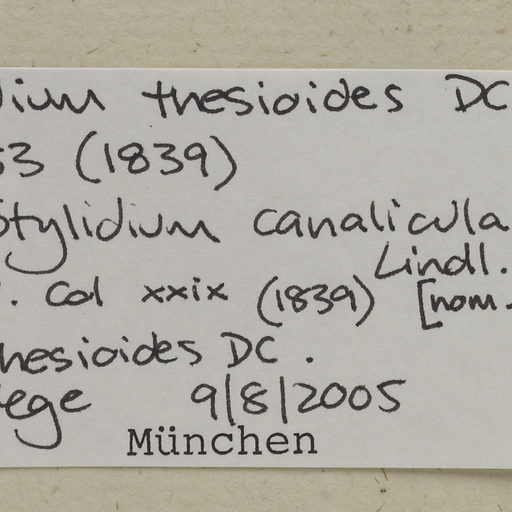 dium thesioides DC
53 (1839)
Stylidium canalicula
Lindl.
. Col xxix (1839) [nom.
hesioides DC.
ege 9/8/2005
München